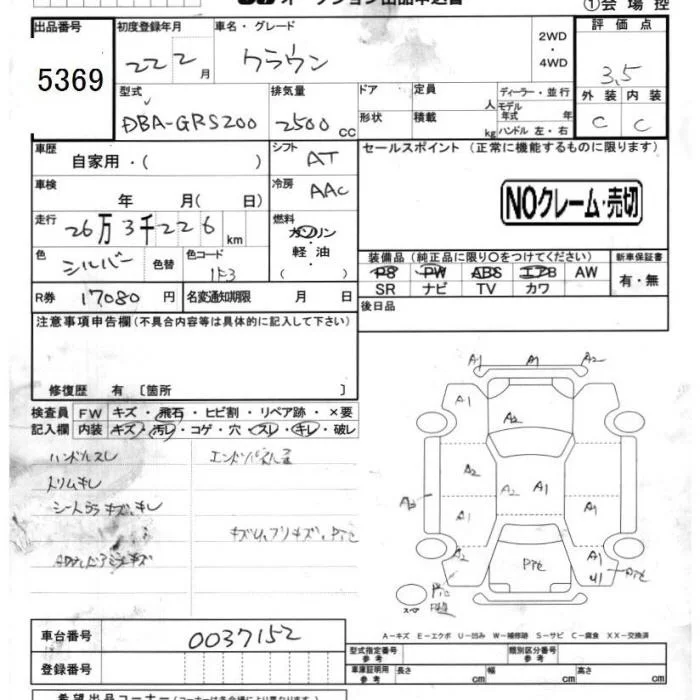 オークション出品申込書
①会場控
出品番号
5369
初度登録年月
22 2 月
車名・グレード
クラウン
2WD
・
4WD
評価点
3.5
外装 内装
C C
型式
DBA-GRS200
排気量
2500 cc
ドア
形状
定員
人
積載
kg
ディーラー・並行
モデル
年式 年
ハンドル 左・右
車歴
自家用・( )
シフト
AT
セールスポイント (正常に機能するものに限ります)
NOクレーム・売切
車検
年 月( 日)
冷房
AAC
走行
26万3千226 km
燃料
ガソリン
・
軽油
( )
色
シルバー
色替
色コード
1F3
装備品 (純正品に限り○をつけてください)
PS PW ABS エアB AW
SR ナビ TV カワ
新車保証書
有・無
R券 17080 円
名変通知期限 月 日
後日品
注意事項申告欄 (不具合内容等は具体的に記入して下さい)
修復歴 有 [箇所 ]
検査員 FW キズ・飛石・ヒビ割・リペア跡・×要
記入欄 内装 キズ・汚レ・コゲ・穴・スレ・キレ・破レ
ハンドルスレ
トリムキレ
シートララキズ、キレ
A1 A1 A2
A1
A2
A2 A2 A1
A2 A1 A1
A2 Pｷｾ A1
U1 Pｷｾ
スペア
A－キズ E－エクボ U－凹み W－補修跡 S－サビ C－腐食 XX－交換済
車台番号 0037152
登録番号
型式指定番号
参考
類別区分番号
参考
車庫証明用
参考
長さ cm 幅 cm 高さ cm
希望出品コーナー